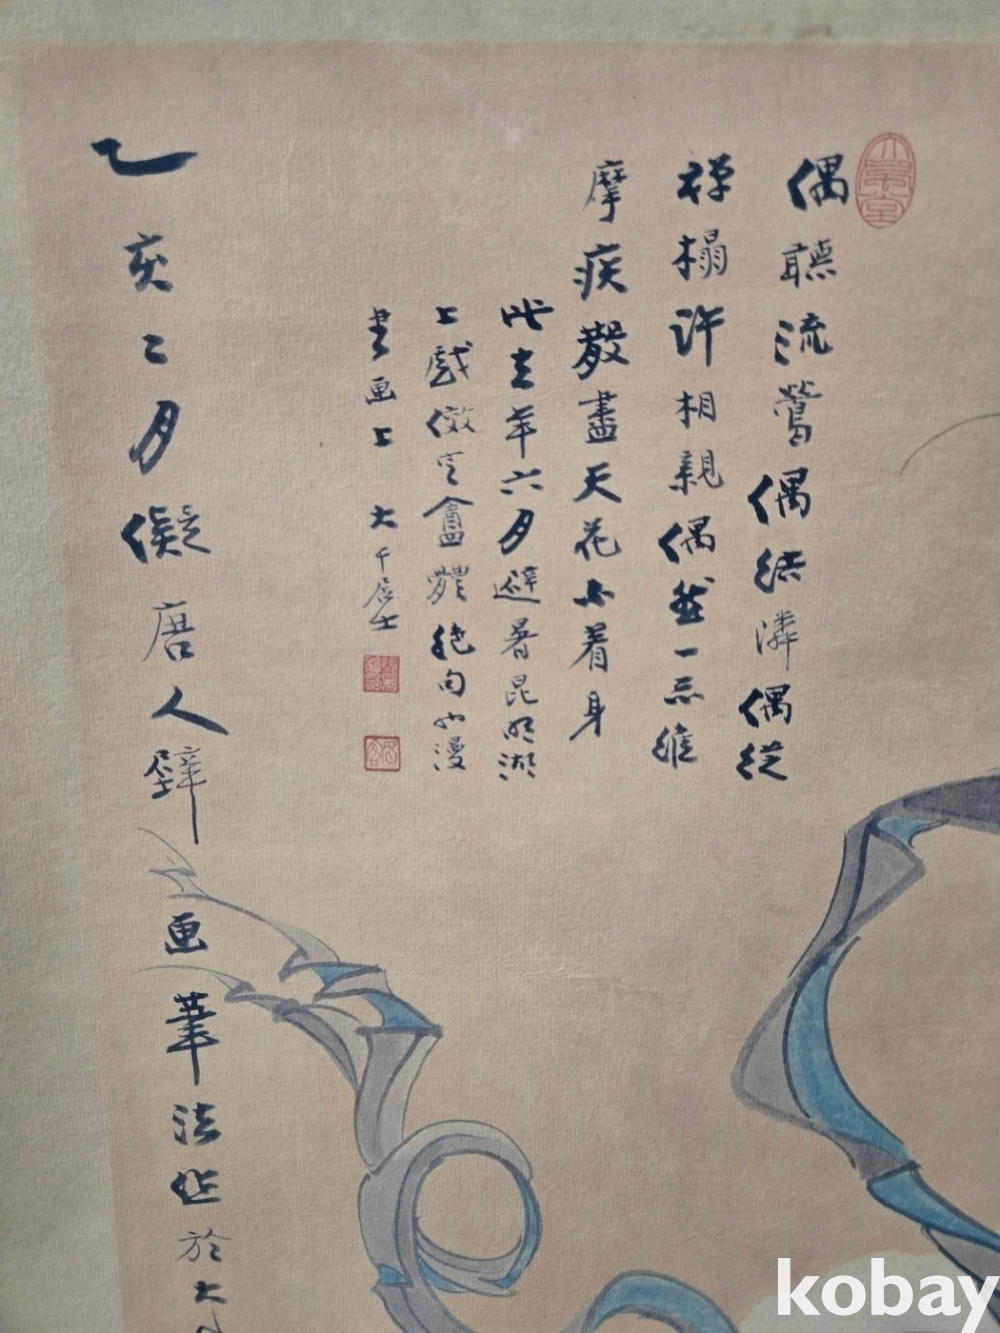 偶聽流鶯偶結隣偶從
禪榻許相親偶然一示維
摩疾散盡天花不着身
此去年六月避暑昆明湖
上戲倣定盦體絕句也漫
書画上 大千居士
乙亥二月儗唐人壁画筆法作於大
大風堂
kobay